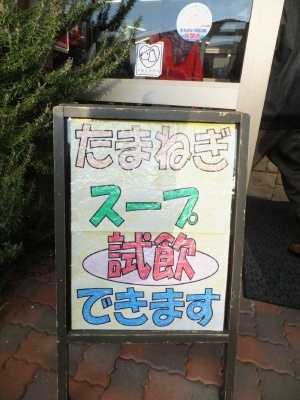 たまねぎ
スープ
試飲
できます